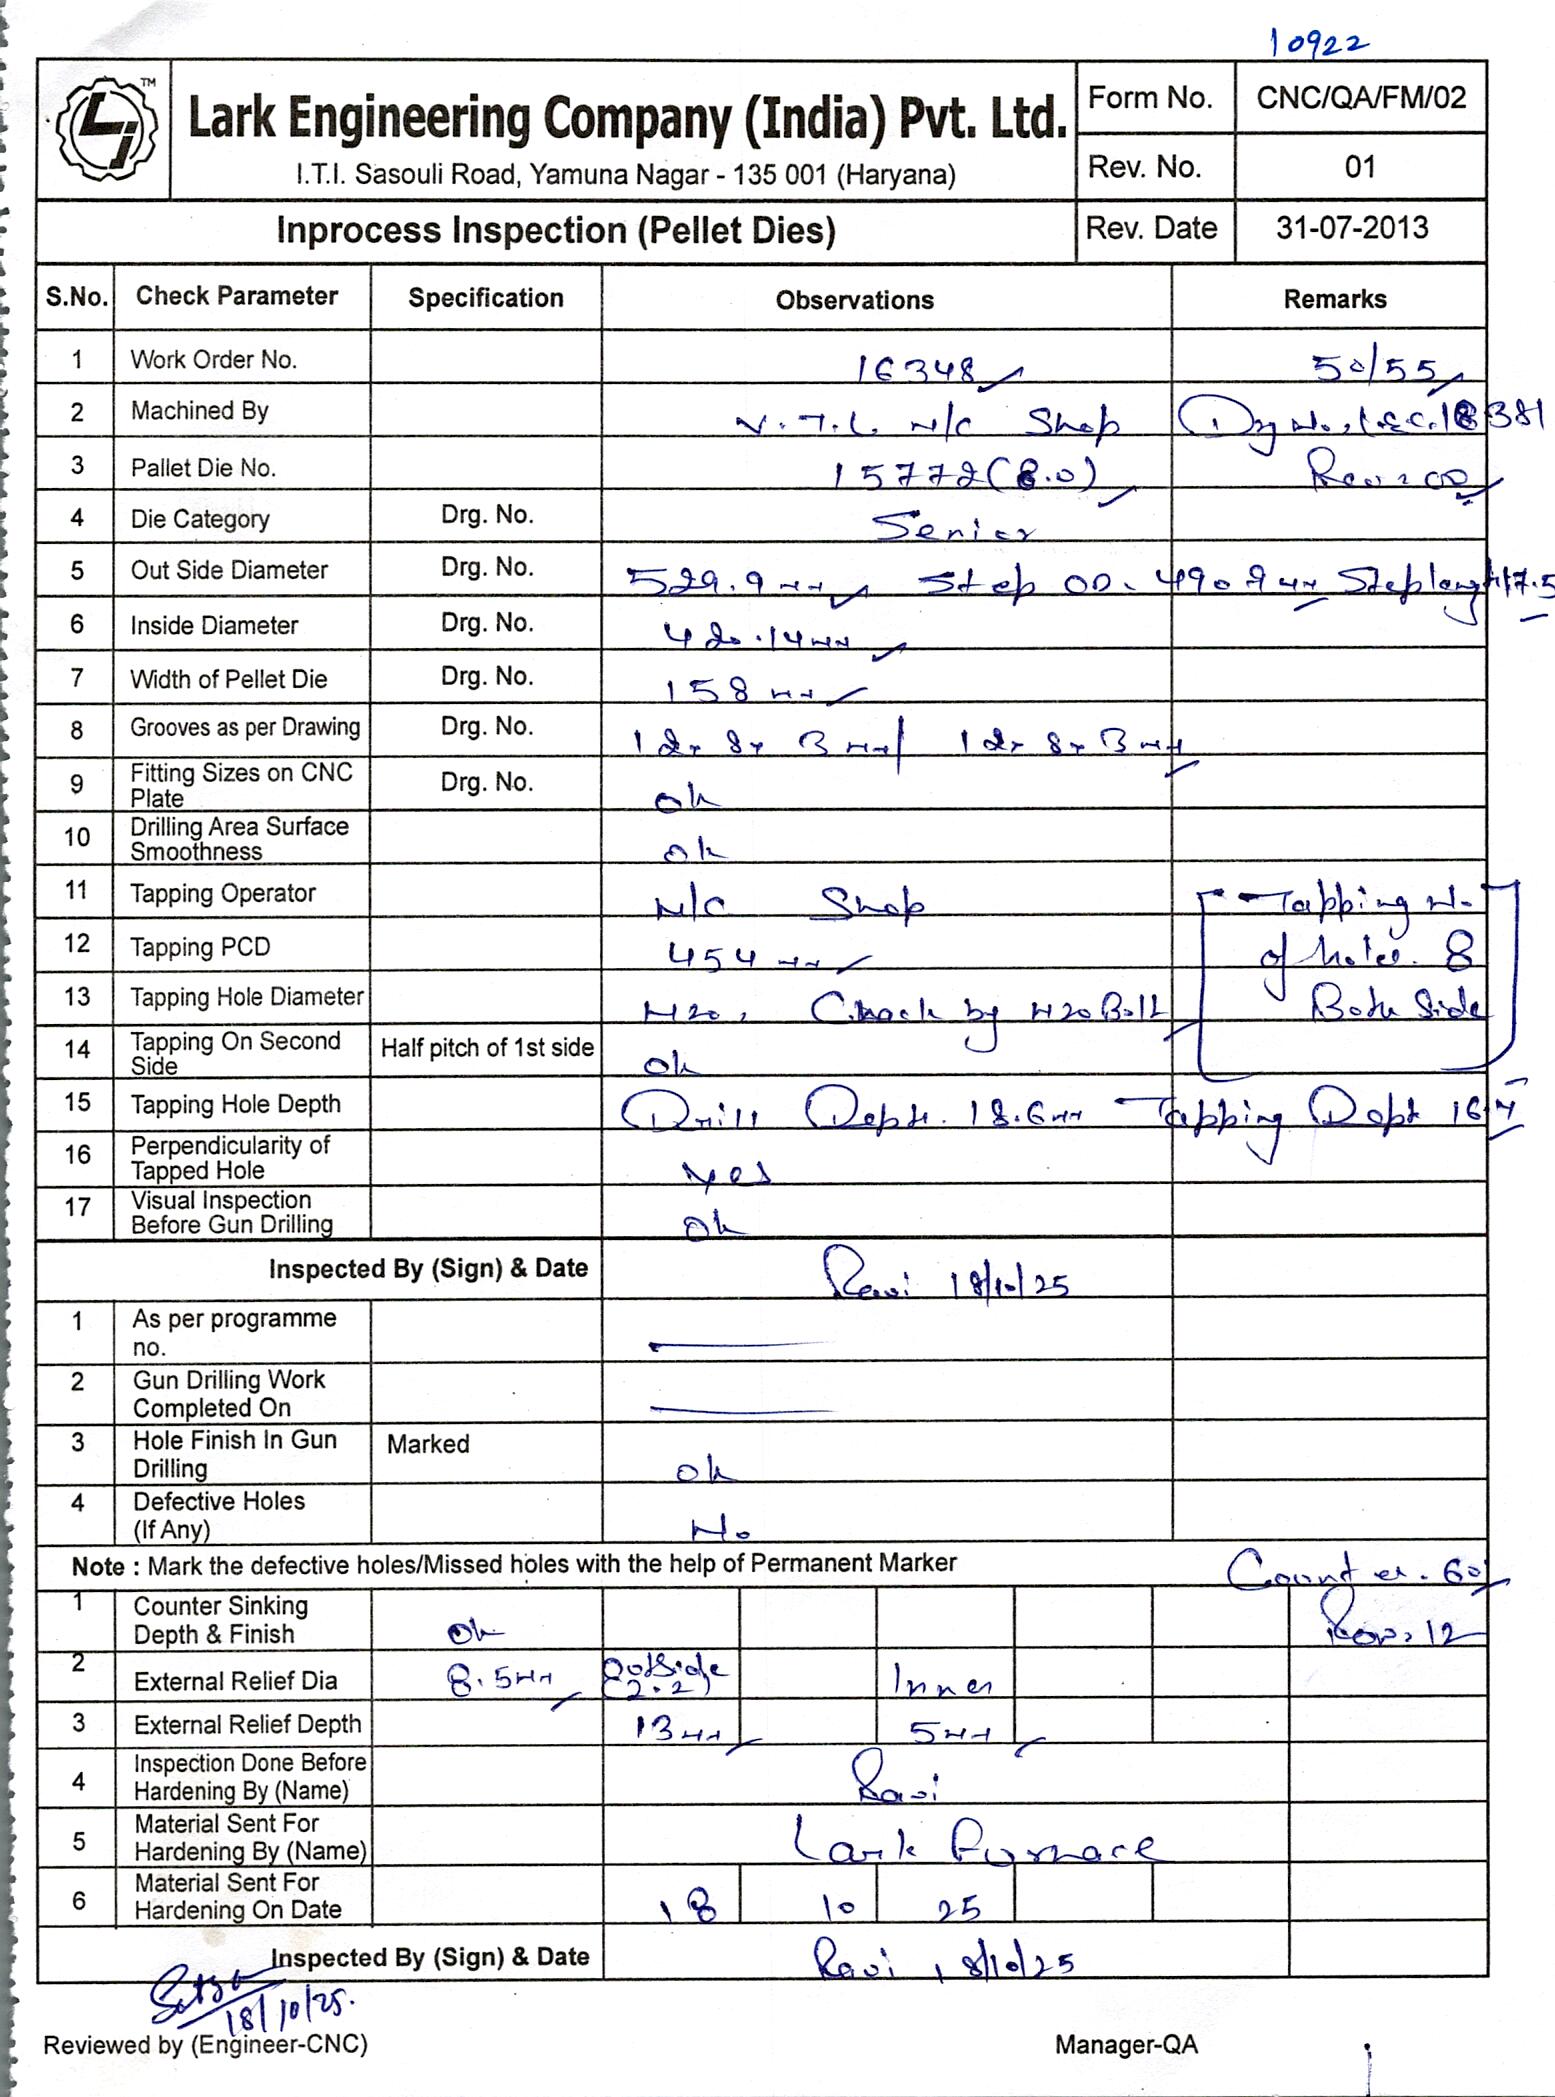 10922
TM
Lark Engineering Company (India) Pvt. Ltd.
I.T.I. Sasouli Road, Yamuna Nagar - 135 001 (Haryana)
Form No. CNC/QA/FM/02
Rev. No. 01
Inprocess Inspection (Pellet Dies) Rev. Date 31-07-2013
S.No. Check Parameter Specification Observations Remarks
1 Work Order No. 16348 50/55
2 Machined By V.T.L M/C Shop Drg No.
3 Pallet Die No. 15772 (8.0) Rev: 00
4 Die Category Drg. No. Senior
5 Out Side Diameter Drg. No. 529.9mm Step OD. 490.9mm Step length 17.5
6 Inside Diameter Drg. No. 420.14mm
7 Width of Pellet Die Drg. No. 158mm
8 Grooves as per Drawing Drg. No. 12x8x3mm/ 12x8x3mm
9 Fitting Sizes on CNC Plate Drg. No. ok
10 Drilling Area Surface Smoothness ok
11 Tapping Operator M/C Shop Tapping N.
12 Tapping PCD 454mm of holes. 8
13 Tapping Hole Diameter M20, Check by M20 Bolt Both Side
14 Tapping On Second Side Half pitch of 1st side ok
15 Tapping Hole Depth Drill Depth. 18.6mm Tapping Dept 16
16 Perpendicularity of Tapped Hole yes
17 Visual Inspection Before Gun Drilling ok
Inspected By (Sign) & Date Ravi 18/10/25
1 As per programme no.
2 Gun Drilling Work Completed On
3 Hole Finish In Gun Drilling Marked ok
4 Defective Holes (If Any) No
Note : Mark the defective holes/Missed holes with the help of Permanent Marker Counter. 60
1 Counter Sinking Depth & Finish ok 12
2 External Relief Dia 8.5mm Outside (2.2) Inner
3 External Relief Depth 13mm 5mm
4 Inspection Done Before Hardening By (Name) Ravi
5 Material Sent For Hardening By (Name) Lark Furnace
6 Material Sent For Hardening On Date 18 10 25
Inspected By (Sign) & Date Ravi 18/10/25
18/10/25.
Reviewed by (Engineer-CNC) Manager-QA